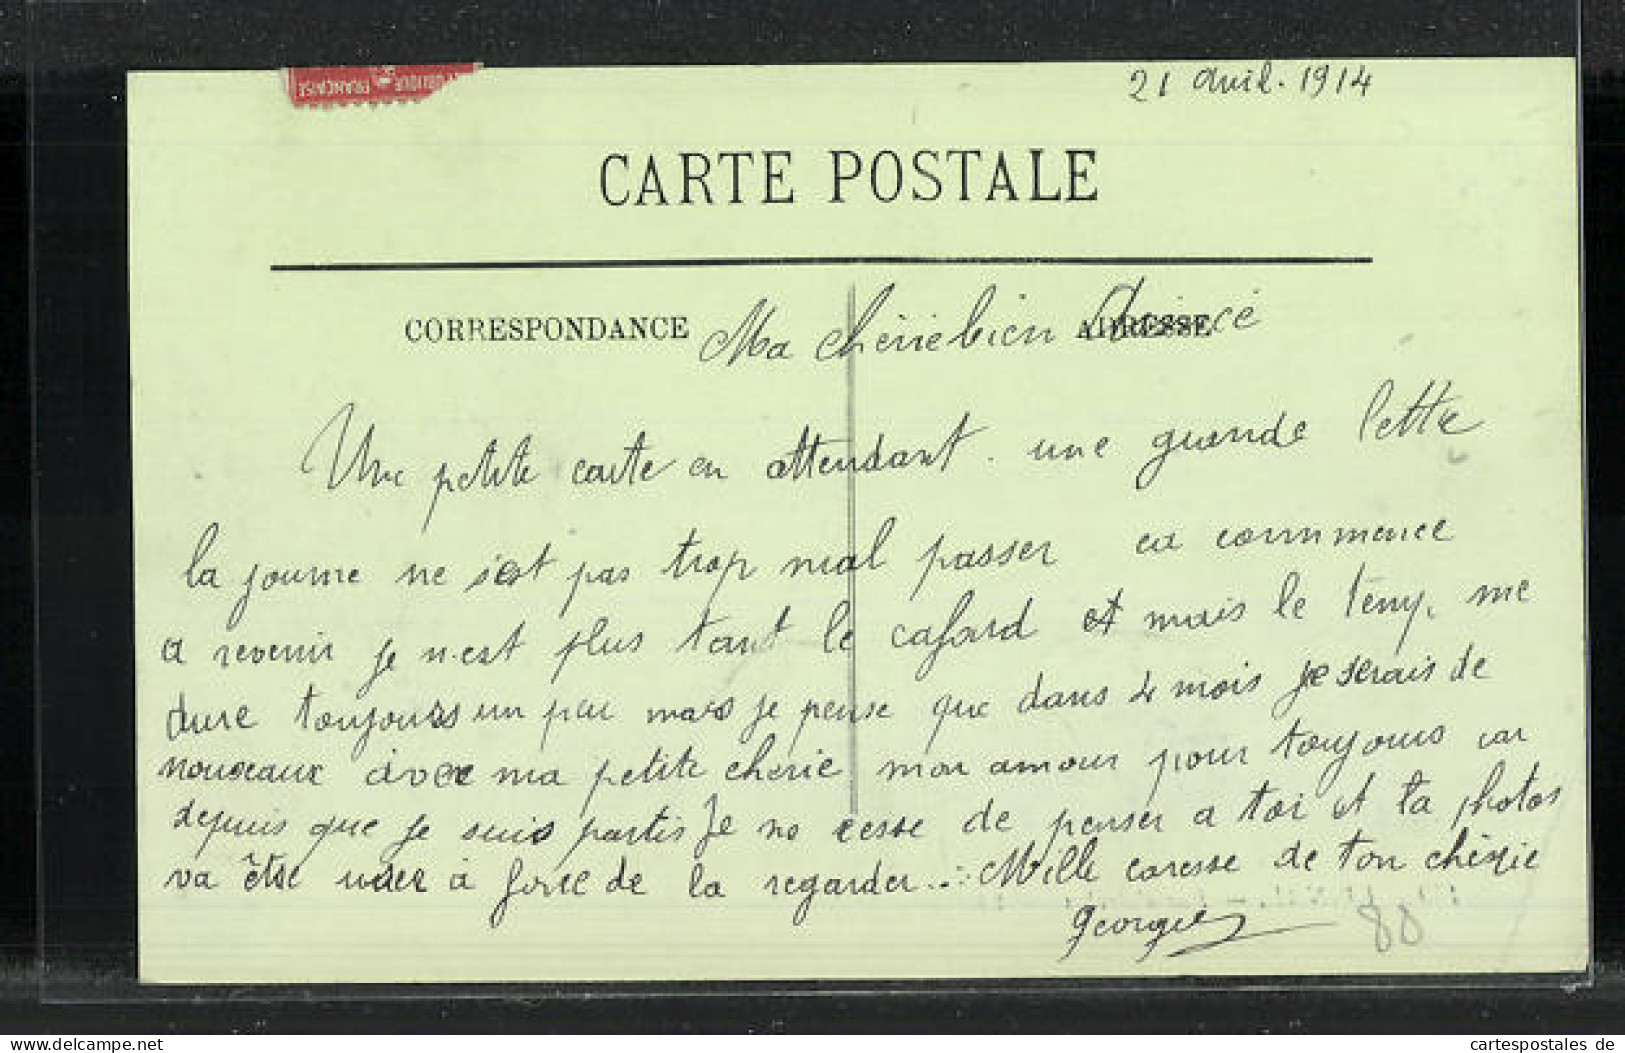 UBLIQUE FRANÇAISE
21 avril. 1914
CARTE POSTALE
CORRESPONDANCE
ADRESSE
Ma chérie bien Aimée
Une petite carte en attendant. une grande lettre
la journe ne s'est pas trop mal passer ca commence
a revenir je n'est plus tant le cafard et mais le temp. me
dure toujours un peu mais je pense que dans 4 mois je serais de
nouveaux avec ma petite cherie mon amour pour toujours car
depuis que je suis partis Je ne cesse de penser a toi et ta photos
va être user à force de la regarder... Mille caresse de ton chérie
Georges
80
www.delcampe.net
cartespostales de